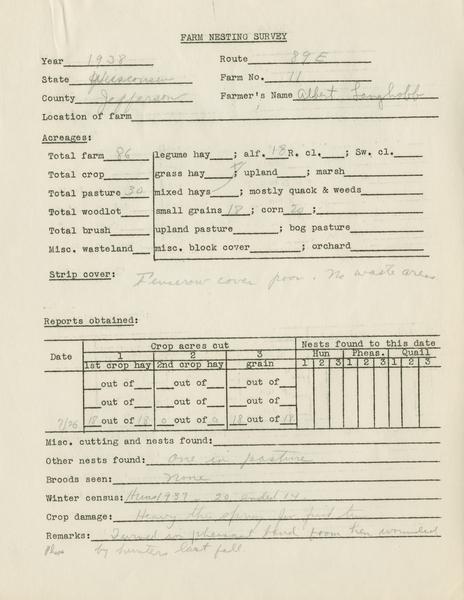 FARM NESTING SURVEY
Year 1938 Route 89E
State Wisconsin Farm No. 11
County Jefferson Farmer's Name Albert
Location of farm
Acreages:
Total farm 86 legume hay ; alf. 18 R. cl. ; Sw. cl.
Total crop grass hay ; upland ; marsh
Total pasture 30 mixed hays ; mostly quack & weeds
Total woodlot small grains 18 ; corn 20 ;
Total brush upland pasture ; bog pasture
Misc. wasteland misc. block cover ; orchard
Strip cover: Fencerow cover poor. No waste areas
Reports obtained:
Crop acres cut Nests found to this date
Date 1 2 3 Hun Pheas. Quail
1st crop hay 2nd crop hay grain 1 2 3 1 2 3 1 2 3
out of out of out of
out of out of out of
7/26 18 out of 18 0 out of 0 18 out of 18
Misc. cutting and nests found:
Other nests found: One in pasture
Broods seen: None
Winter census: Huns 1937 - 20 ended 14
Crop damage: Heavy this spring
Remarks: Turned in pheasant hen wounded
by hunters last fall